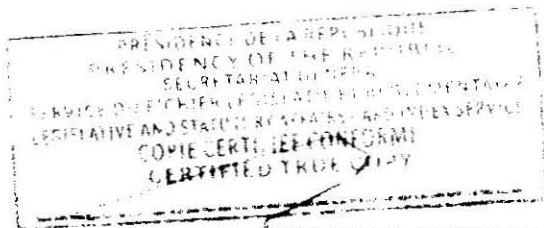 PRESIDENCE DE LA REPUBLIQUE
PRESIDENCY OF THE REPUBLIC
SECRETARIAT
SERVICE DU FICHIER LEGISLATIF ET REGLEMENTAIRE
LEGISLATIVE AND STATUTORY AFFAIRS AND INDEX SERVICE
COPIE CERTIFIEE CONFORME
CERTIFIED TRUE COPY